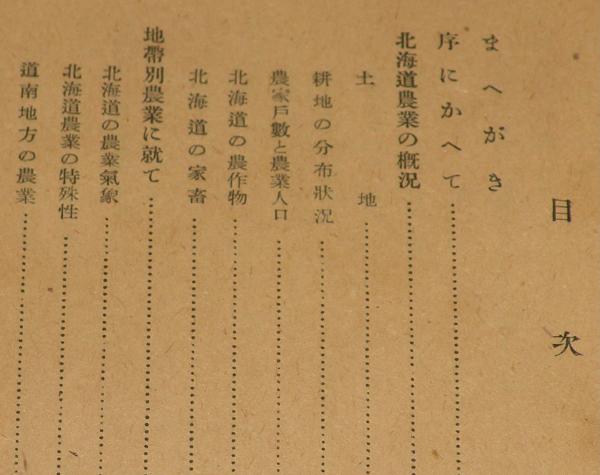 目次
まへがき
序にかへて
北海道農業の概況
土地
耕地の分布狀況
農家戶數と農業人口
北海道の農作物
北海道の家畜
地帶別農業に就て
北海道の農業氣象
北海道農業の特殊性
道南地方の農業